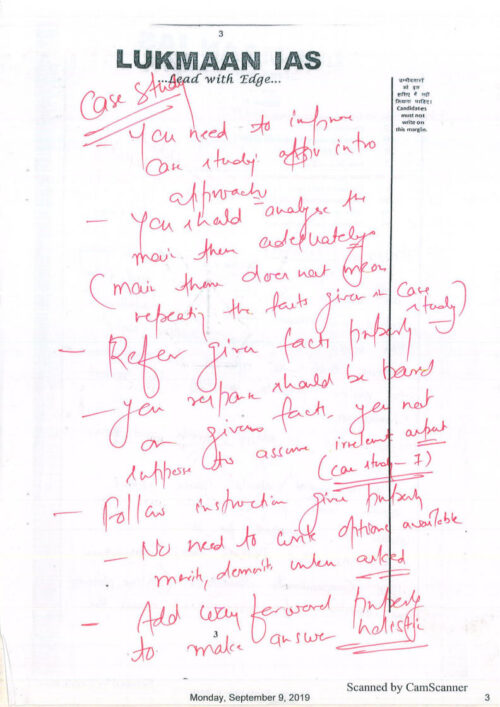 3
LUKMAAN IAS
...Lead with Edge...
उम्मीदवारों
को इस
हाशिए में नहीं
लिखना चाहिए।
Candidates
must not
write on
this margin.
Case Study
- You need to improve
Case study intro
approach
- You should analyse the
main them adequately
(main them does not mean
repeating the facts given in Case
study)
- Refer given facts properly
- your response should be based
on given facts, you not
suppose to assume irrelevant aspect
(case study - 1)
- Follow instruction give properly
- No need to write options available
merit, demerits unless asked
- Add way forward properly
to make answer holistic
3
Scanned by CamScanner
Monday, September 9, 2019
3